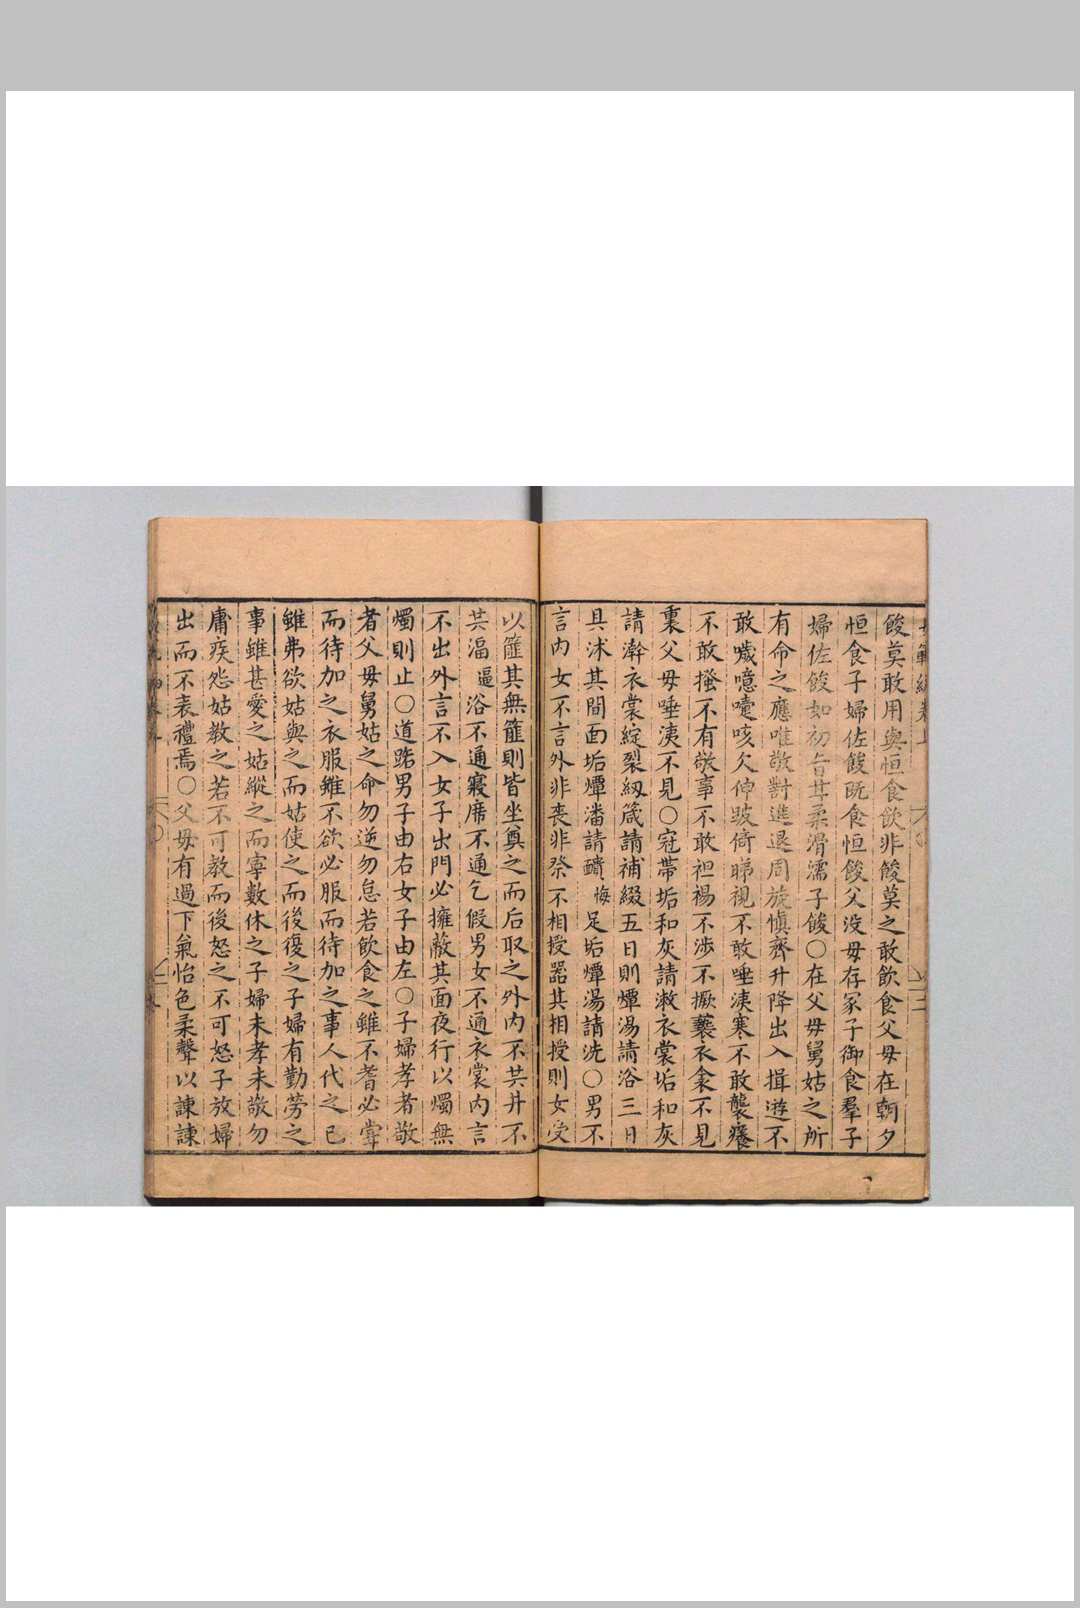 餕莫敢用與恒食飲非餕莫之敢飲食父母在朝夕
恒食子婦佐餕旣食恒餕父沒母存冢子御食羣子
婦佐餕如初旨甘柔滑濡子餕○在父母舅姑之所
有命之應唯敬對進退周旋愼齊升降出入揖遊不
敢噦噫嚏咳欠伸跛倚睇視不敢唾洟寒不敢襲癢
不敢搔不有敬事不敢袒裼不涉不撅褻衣衾不見
裏父母唾洟不見○冠帶垢和灰請漱衣裳垢和灰
請澣衣裳綻裂紉箴請補綴五日則燂湯請浴三日
具沐其間面垢燂潘請靧悔足垢燂湯請洗○男不
言內女不言外非喪非祭不相授器其相授則女受
以篚其無篚則皆坐奠之而后取之外內不共井不
共湢逼浴不通寢席不通乞假男女不通衣裳內言
不出外言不入女子出門必擁蔽其面夜行以燭無
燭則止○道路男子由右女子由左○子婦孝者敬
者父母舅姑之命勿逆勿怠若飮食之雖不耆必嘗
而待加之衣服雖不欲必服而待加之事人代之已
雖弗欲姑與之而姑使之而後復之子婦有勤勞之
事雖甚愛之姑縱之而寧數休之子婦未孝未敬勿
庸疾怨姑敎之若不可敎而後怒之不可怒子放婦
出而不表禮焉○父母有過下氣怡色柔聲以諫諫